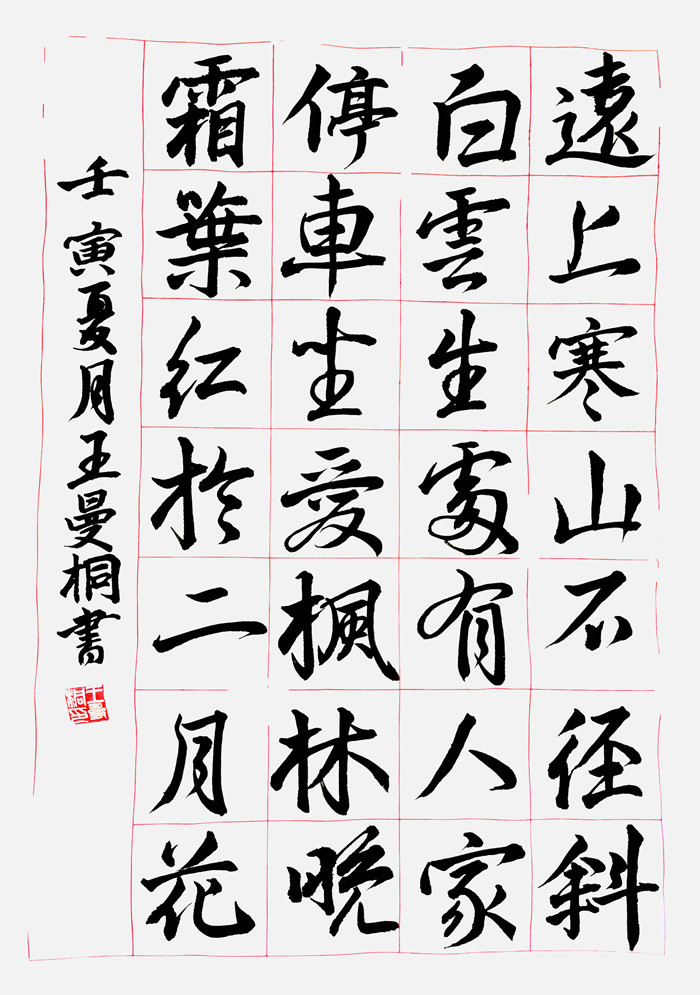 遠上寒山石徑斜
白雲生處有人家
停車坐愛楓林晚
霜葉紅於二月花
壬寅夏月王曼桐書